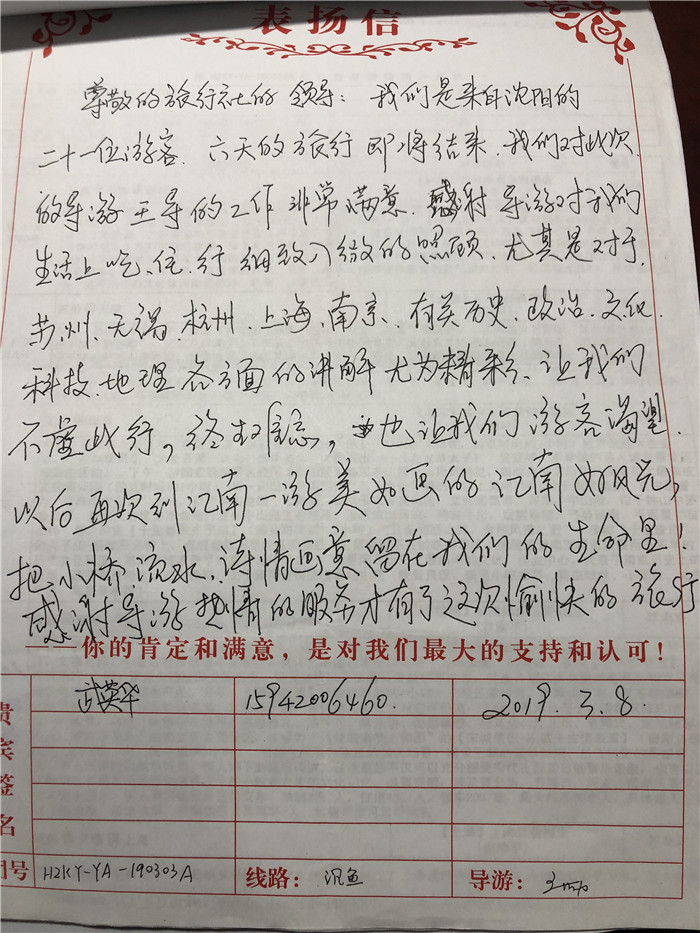 表扬信
尊敬的旅行社的领导：我们是来自沈阳的
二十一位游客．六天的旅行即将结束．我们对此次
的导游王导的工作非常满意．感谢导游对我们
生活上吃、住、行细致入微的照顾．尤其是对于
苏州、无锡、杭州、上海、南京、有关历史、政治、文化
科技、地理各方面的讲解尤为精彩、让我们
不虚此行，终生难忘，也让我们游客渴望
以后再次到江南一游美如画的江南好风光，
把小桥流水、诗情画意留在我们的生命里！
感谢导游热情的服务才有了这次愉快的旅行
——你的肯定和满意，是对我们最大的支持和认可！
贵宾签名
武英华 15942006460. 2019.3.8.
团号 HZKY-YA-190303A 线路： 沉鱼 导游：